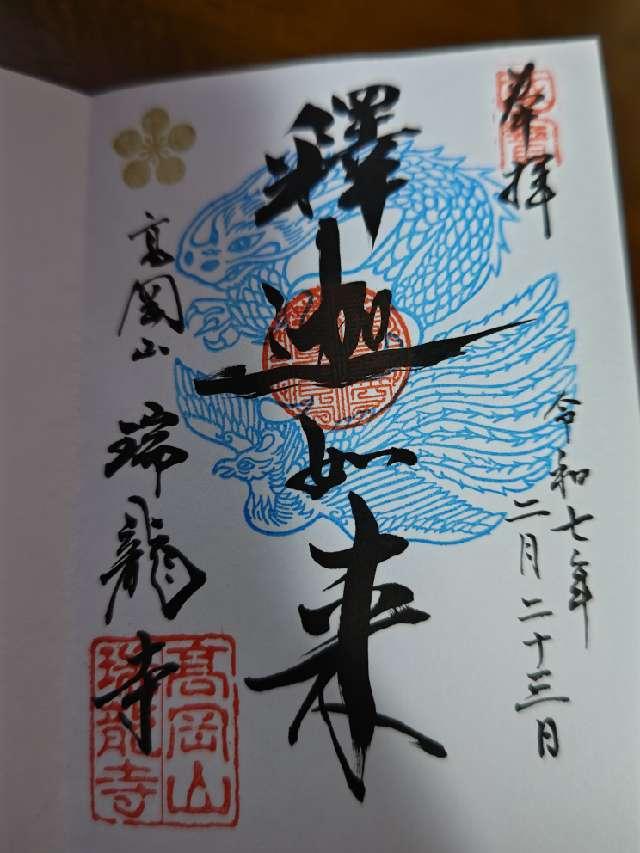 奉拝
令和七年
二月二十三日
釋迦如来
高岡山
瑞龍寺
高岡山
瑞龍寺